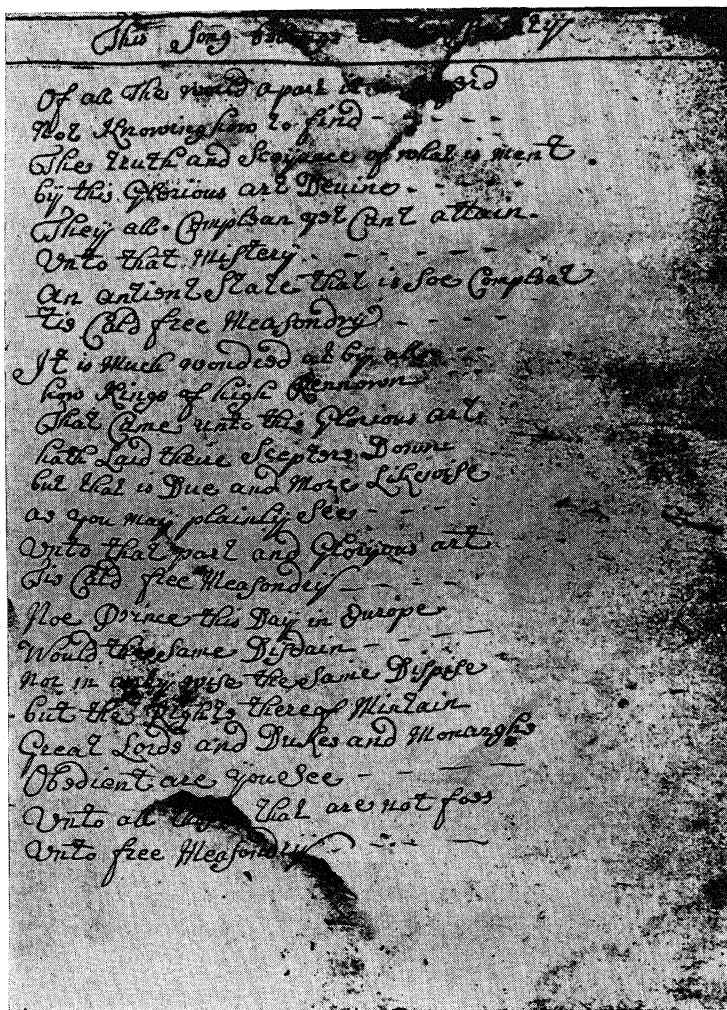 This Song belongs
Of all The world apart
Not Knowing how to find - - - -
The truth and Sceyance of what is ment
by this Glorious art Devine - - -
They all Complean yet Cant attain -
Unto that Mistery - - - -
An antient State that is Soe Compleat
tis Cald free Measondry - - - -
It is Much wondred at by all
how Kings of high Rennown
That Came unto this Glorious art
hath Laid theire Scepters Down
but that is Due and More Likewise
as you may plainly See - -
Unto that part and Gloryous art
Tis Cald free Measondry - - - -
Noe Prince this Day in Europe
Would the Same Disdain - - -
Nor in any wise the Same Dispise
but the Rights thereof Mintain
Great Lords and Dukes and Monarghs
Obedient are you See - - - -
Unto all that are not foes
Unto free Measondry - - - -